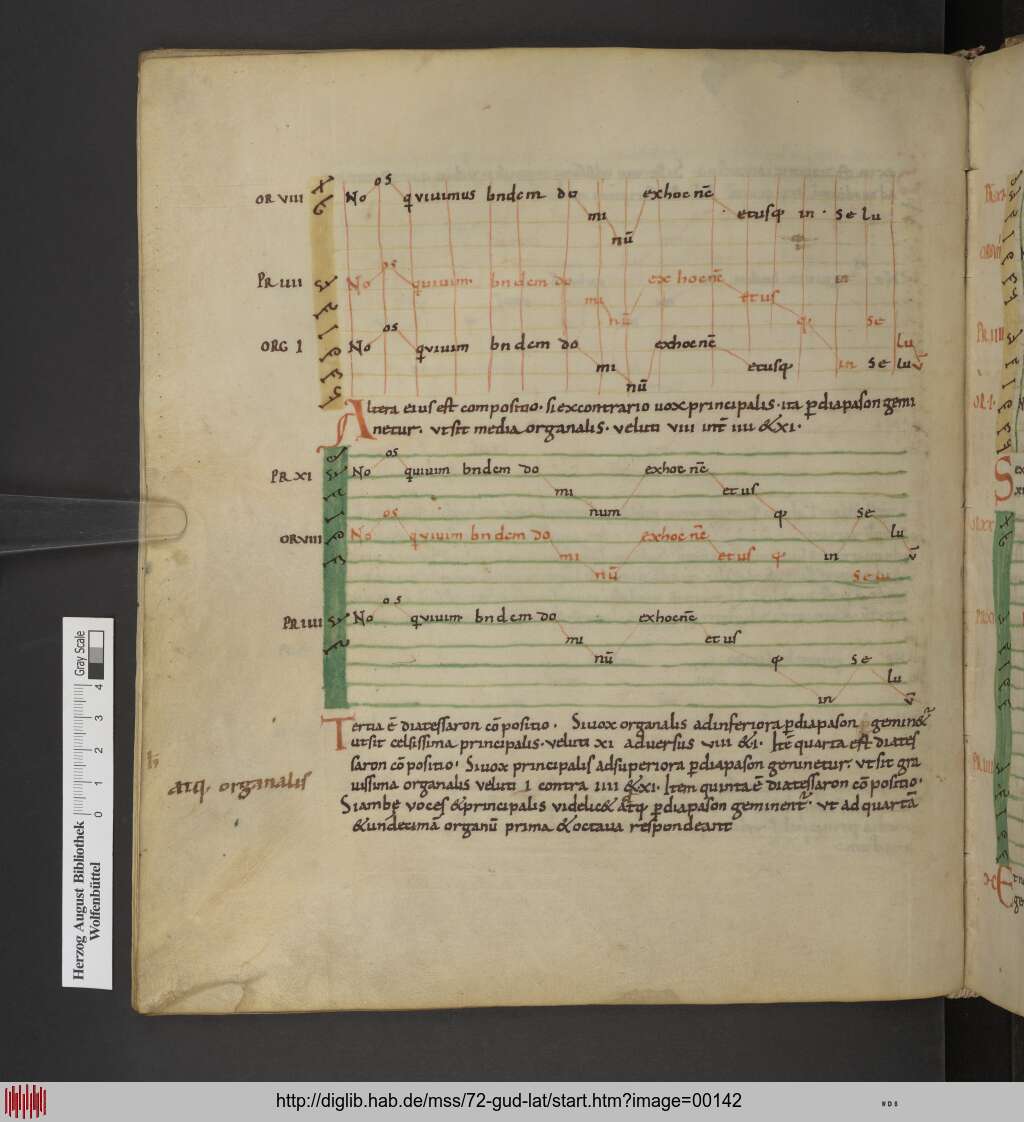 OR VIII No os q̄ viuimus bndem do mi nū exhoc nc̄ etusq; in se lu
PR IIII No os quiuim bndem do mi nū ex hoc nc̄ et us q; in se lu
ORG I No os qviuim bndem do mi nū exhoc nc̄ etusq; in se lu v̄
Altera eius est compositio · si excontrario uox principalis · ita p̱diapason gemi
netur · vt sit media organalis · veluti VIII int̄ IIII & XI ·
PR XI No os quiuim bndem do mi num exhoc nc̄ et us q; in se lu v̄
OR VIII No os quiuim bndem do mi nū exhoc nc̄ et us q; in se lu
PR IIII No os quiuim bndem do mi nū exhoc nc̄ et us q; in se lu v̄
Tertia ē diatessaron cōpositio · Si uox organalis ad inferiora p̱diapason gemin&ur
ut sit celsissima principalis · veluti XI adversus VIII & I · Itē quarta est diates
saron cōpositio · Si uox principalis ad superiora p̱diapason geminetur · vt sit gra
uissima organalis veluti I contra IIII & XI · Item quinta ē diatessaron cōpositio ·
atq; organalis
Si ambę voces & principalis videlic& atq; p̱diapason geminent᷑ · vt ad quartā
& undecimā organū prima & octaua respondeant
Herzog August Bibliothek
Wolfenbüttel
0 1 2 3 4
Gray Scale
http://diglib.hab.de/mss/72-gud-lat/start.htm?image=00142